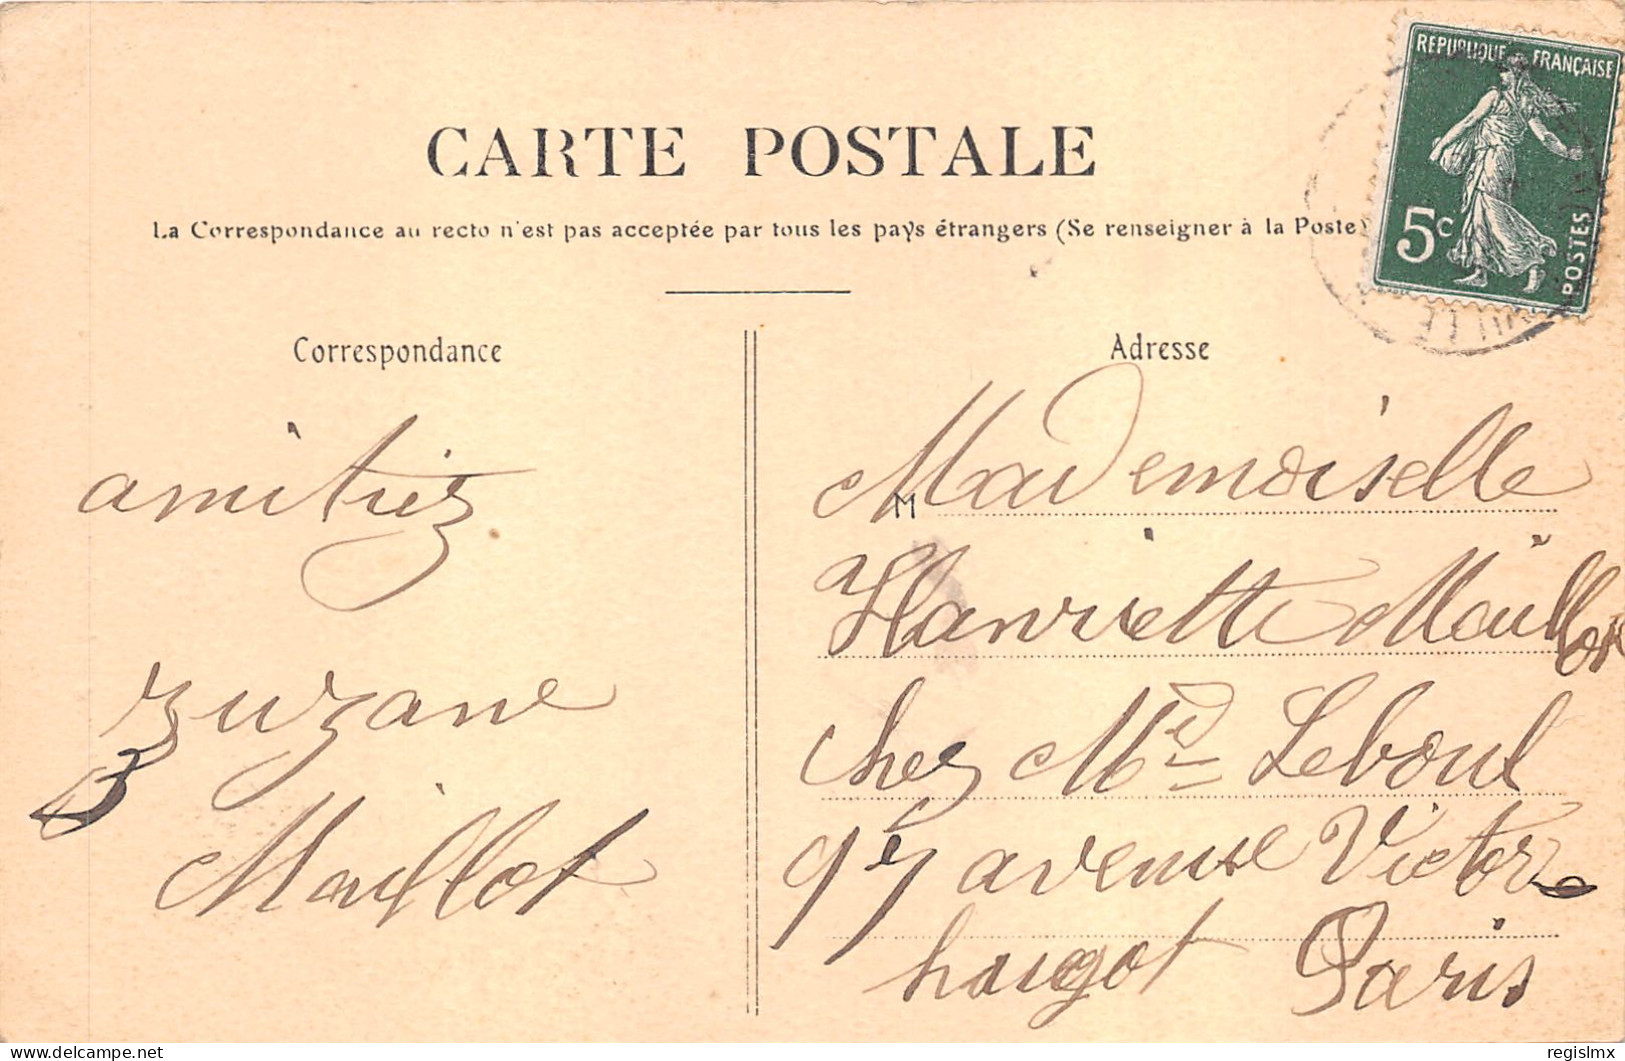 REPUBLIQUE FRANÇAISE
5c
POSTES
CARTE POSTALE
La Correspondance au recto n'est pas acceptée par tous les pays étrangers (Se renseigner à la Poste)
Correspondance
amitiez
zuzane
Maillot
Adresse
Mademoiselle
M
Hanriette Maillot
chez Md Leboul
avenue Victor
hugot Paris
delcampe.net
regislmx